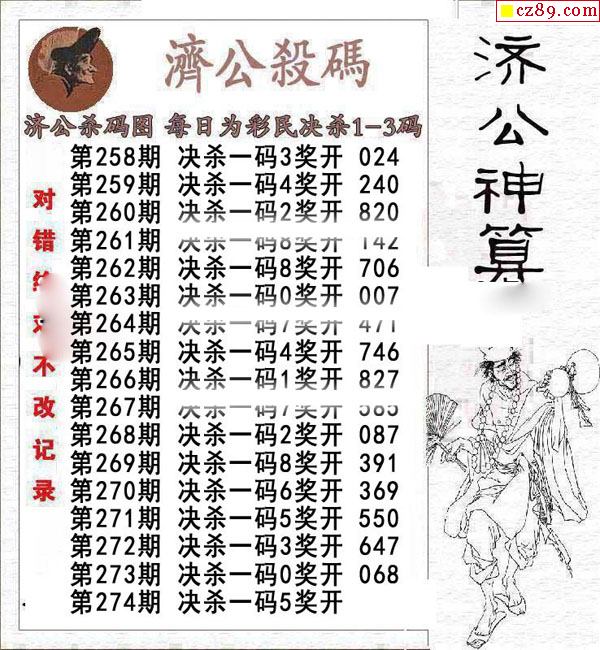 cz89.com
濟公殺碼
济公杀码图 每日为彩民决杀1-3码
第258期 决杀一码3奖开 024
第259期 决杀一码4奖开 240
第260期 决杀一码2奖开 820
第261期 决杀一码8奖开 142
第262期 决杀一码8奖开 706
第263期 决杀一码0奖开 007
第264期 决杀一码7奖开 471
第265期 决杀一码4奖开 746
第266期 决杀一码1奖开 827
第267期 决杀一码7奖开 585
第268期 决杀一码2奖开 087
第269期 决杀一码8奖开 391
第270期 决杀一码6奖开 369
第271期 决杀一码5奖开 550
第272期 决杀一码3奖开 647
第273期 决杀一码0奖开 068
第274期 决杀一码5奖开
对错不改记录
济公神算